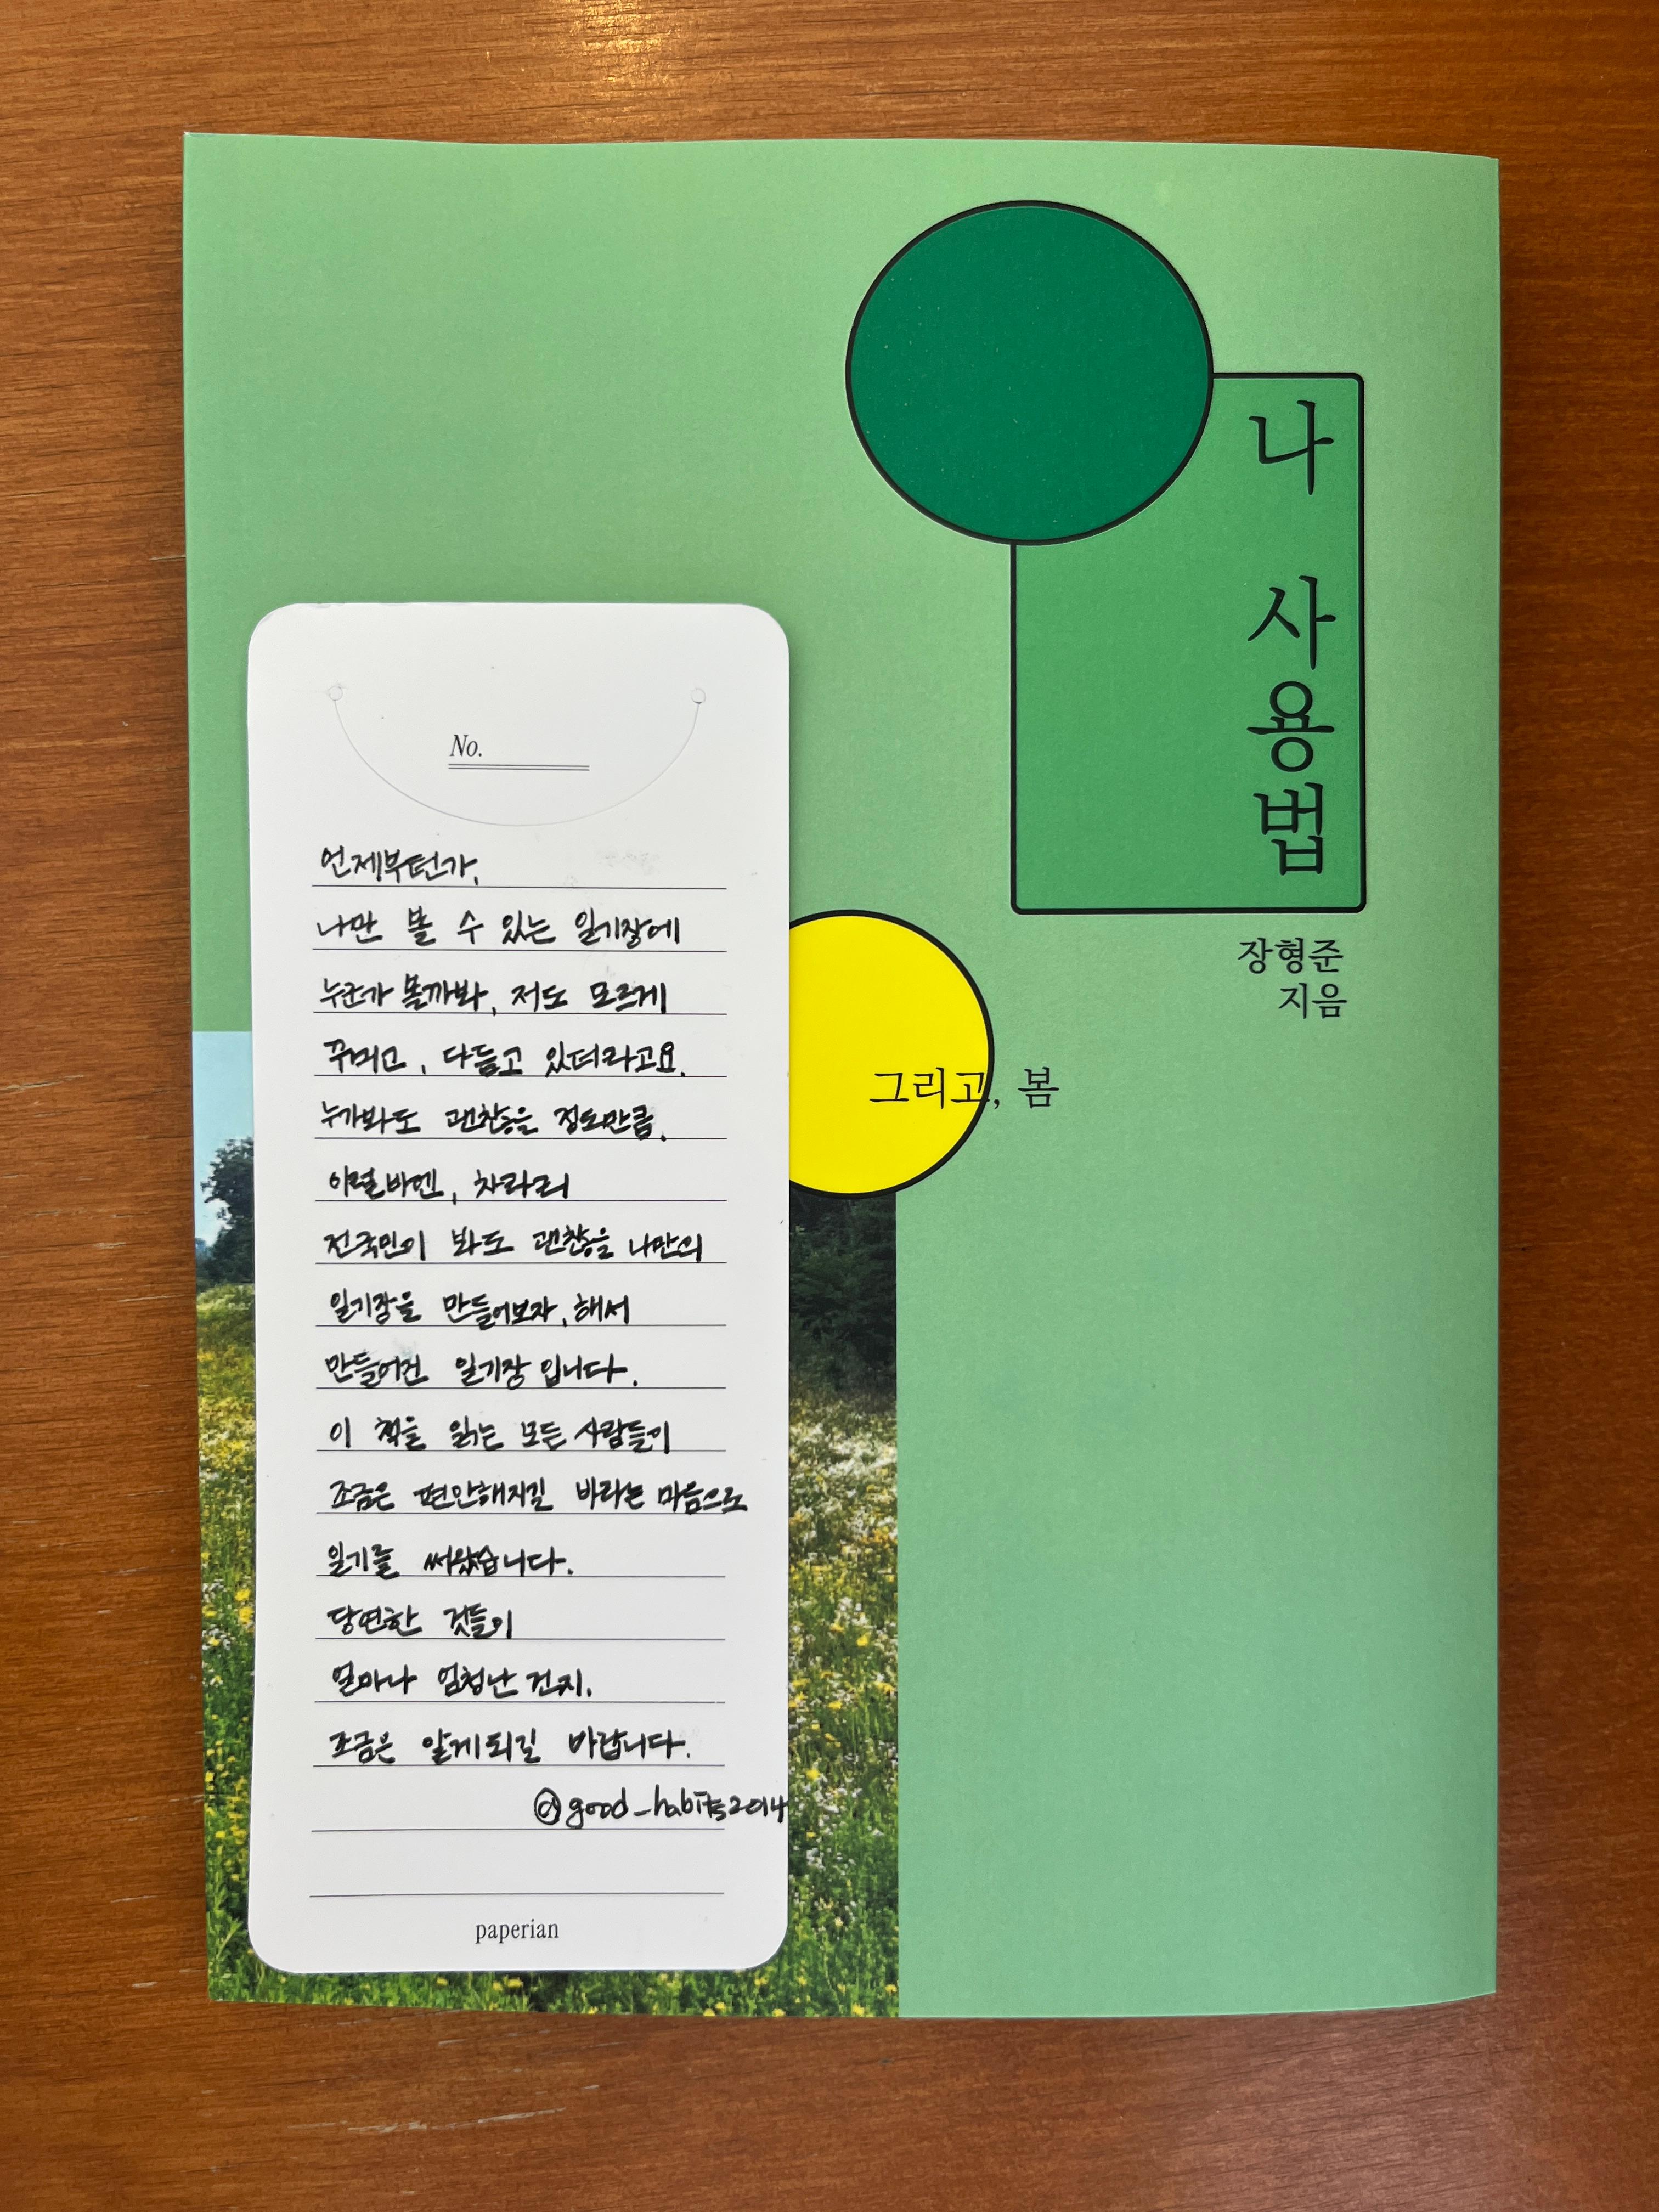 나 사용법
장형준
지음
그리고, 봄
No.
언제부턴가,
나만 볼 수 있는 일기장에
누군가 볼까봐, 저도 모르게
꾸미고, 다듬고 있더라고요.
누가봐도 괜찮을 정도만큼.
이럴바엔, 차라리
전국민이 봐도 괜찮을 나만의
일기장을 만들어보자, 해서
만들어진 일기장 입니다.
이 책을 읽는 모든 사람들이
조금은 편안해지길 바라는 마음으로
일기를 써왔습니다.
당연한 것들이
얼마나 엄청난 건지.
조금은 알게되길 바랍니다.
@good_habits2014
paperian